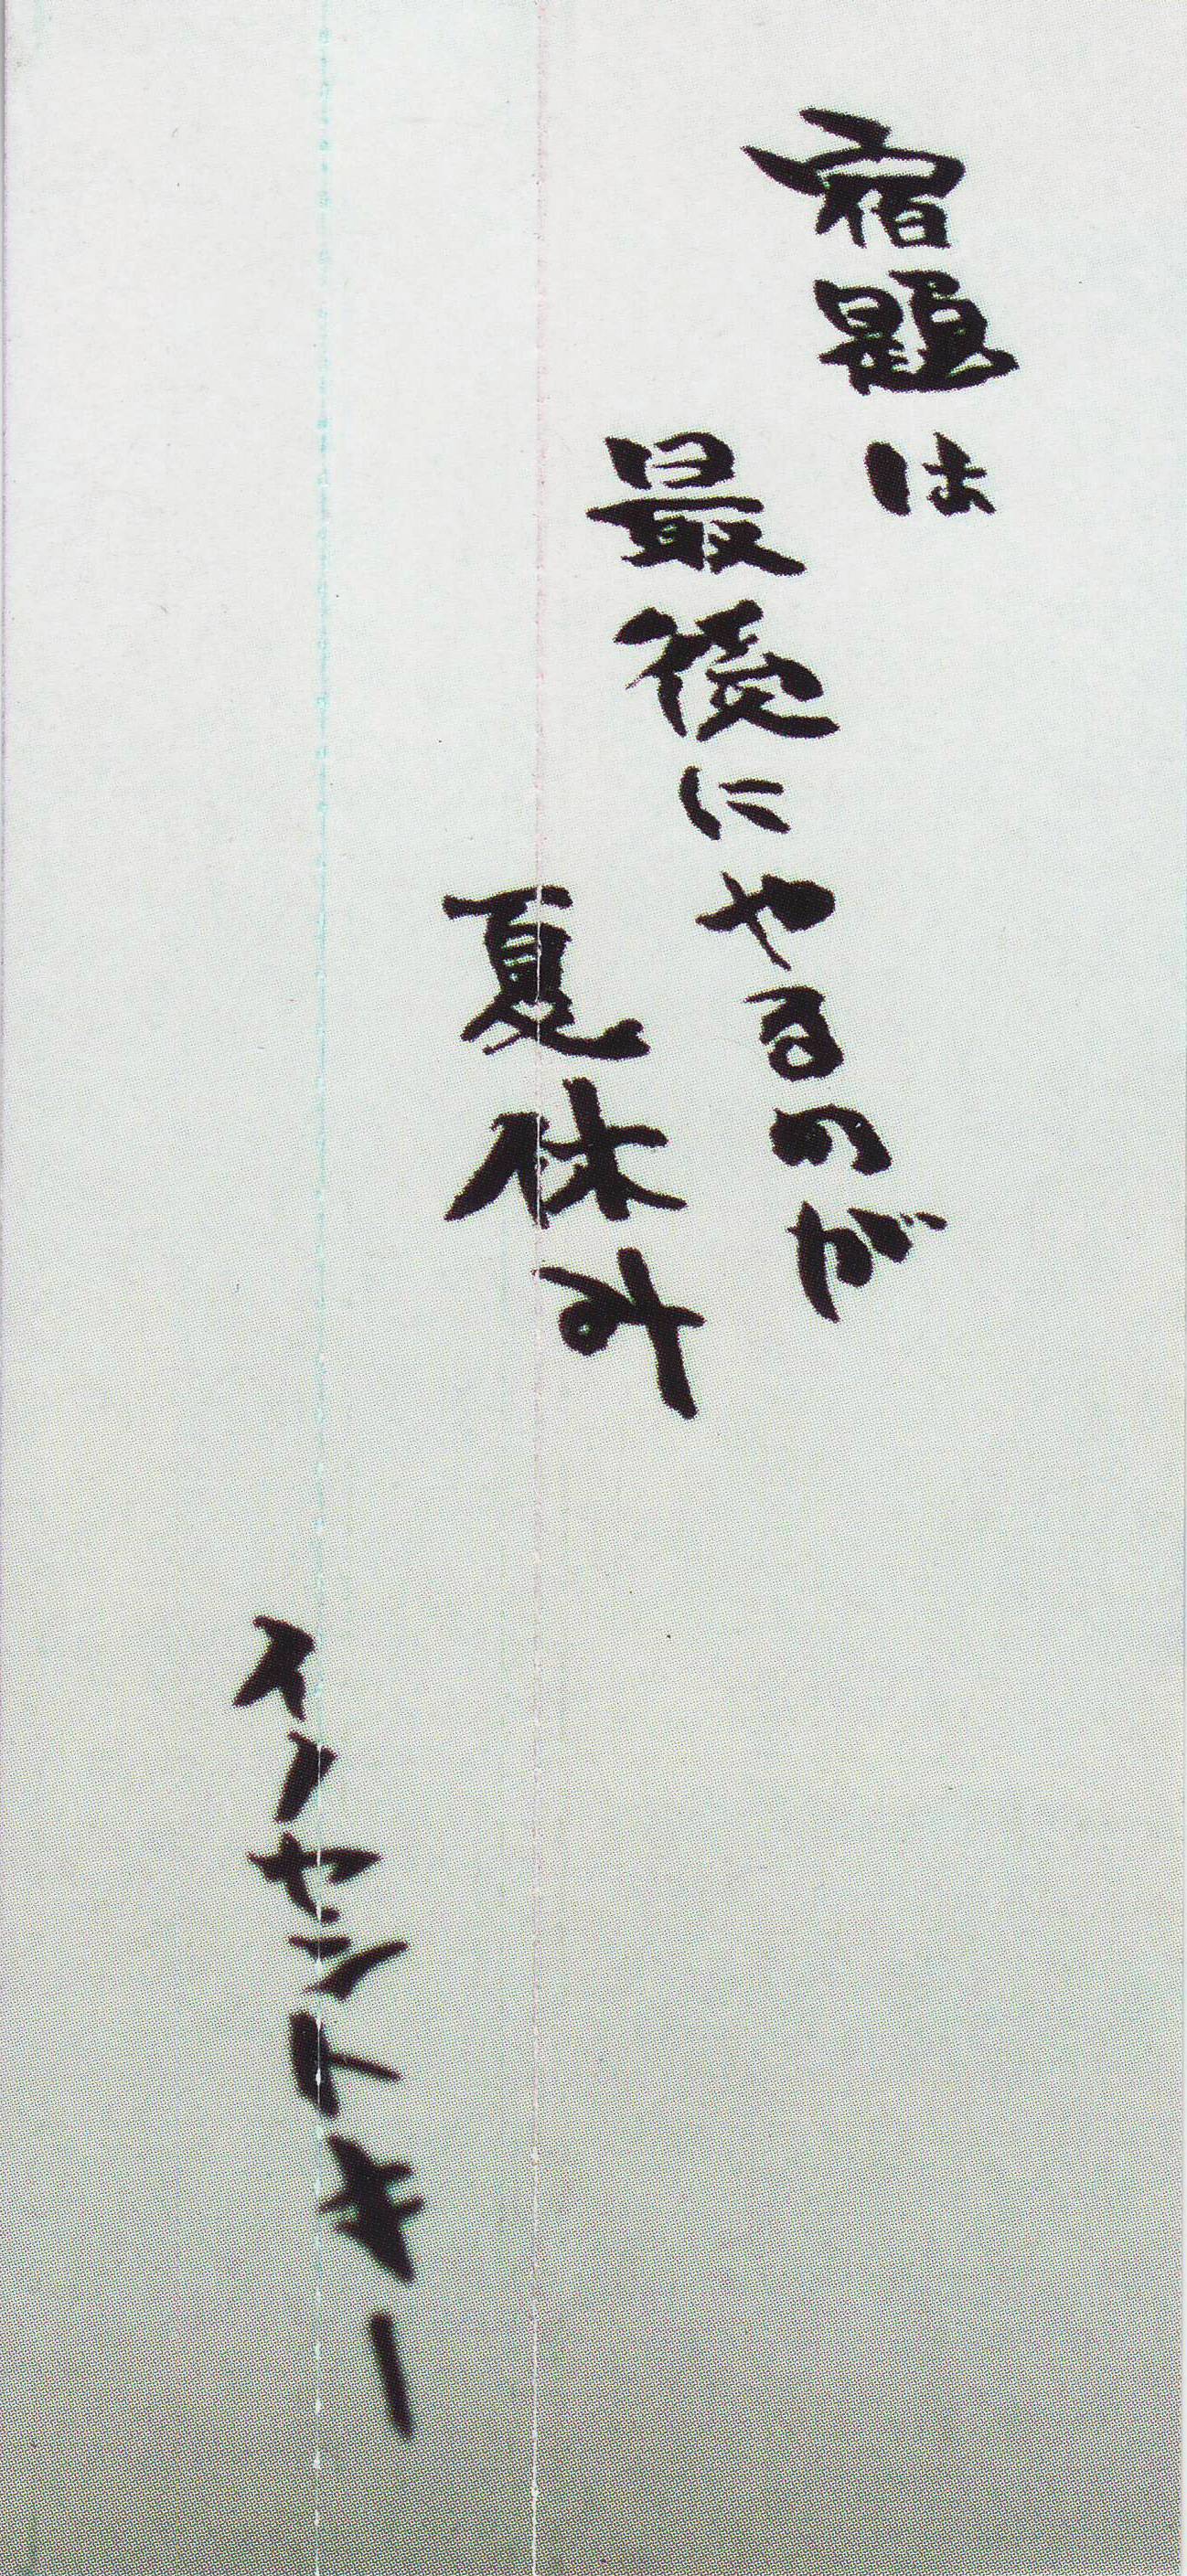 宿題は
最後にやるのが
夏休み
イノセントキー